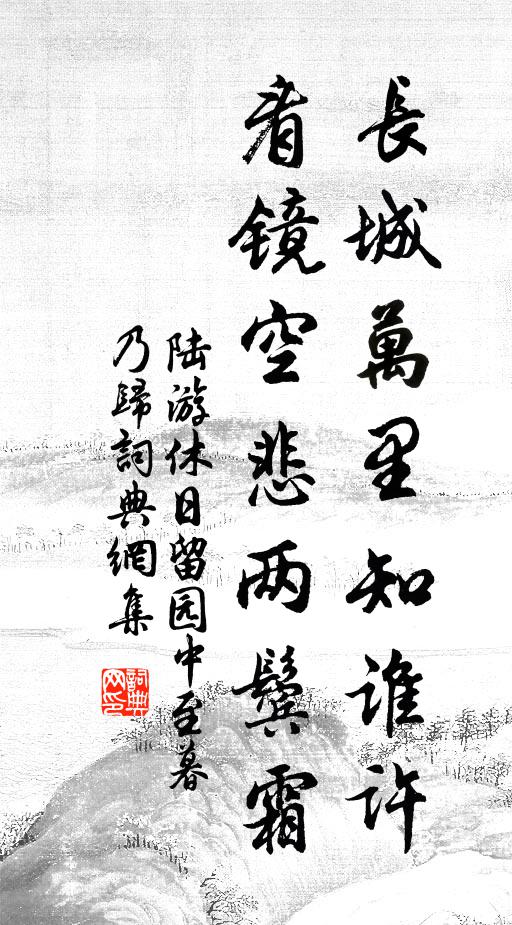 長城萬里知誰許
看镜空悲两鬓霜
陆游休日留园中至暮
乃歸詞典網集
詞典
网印